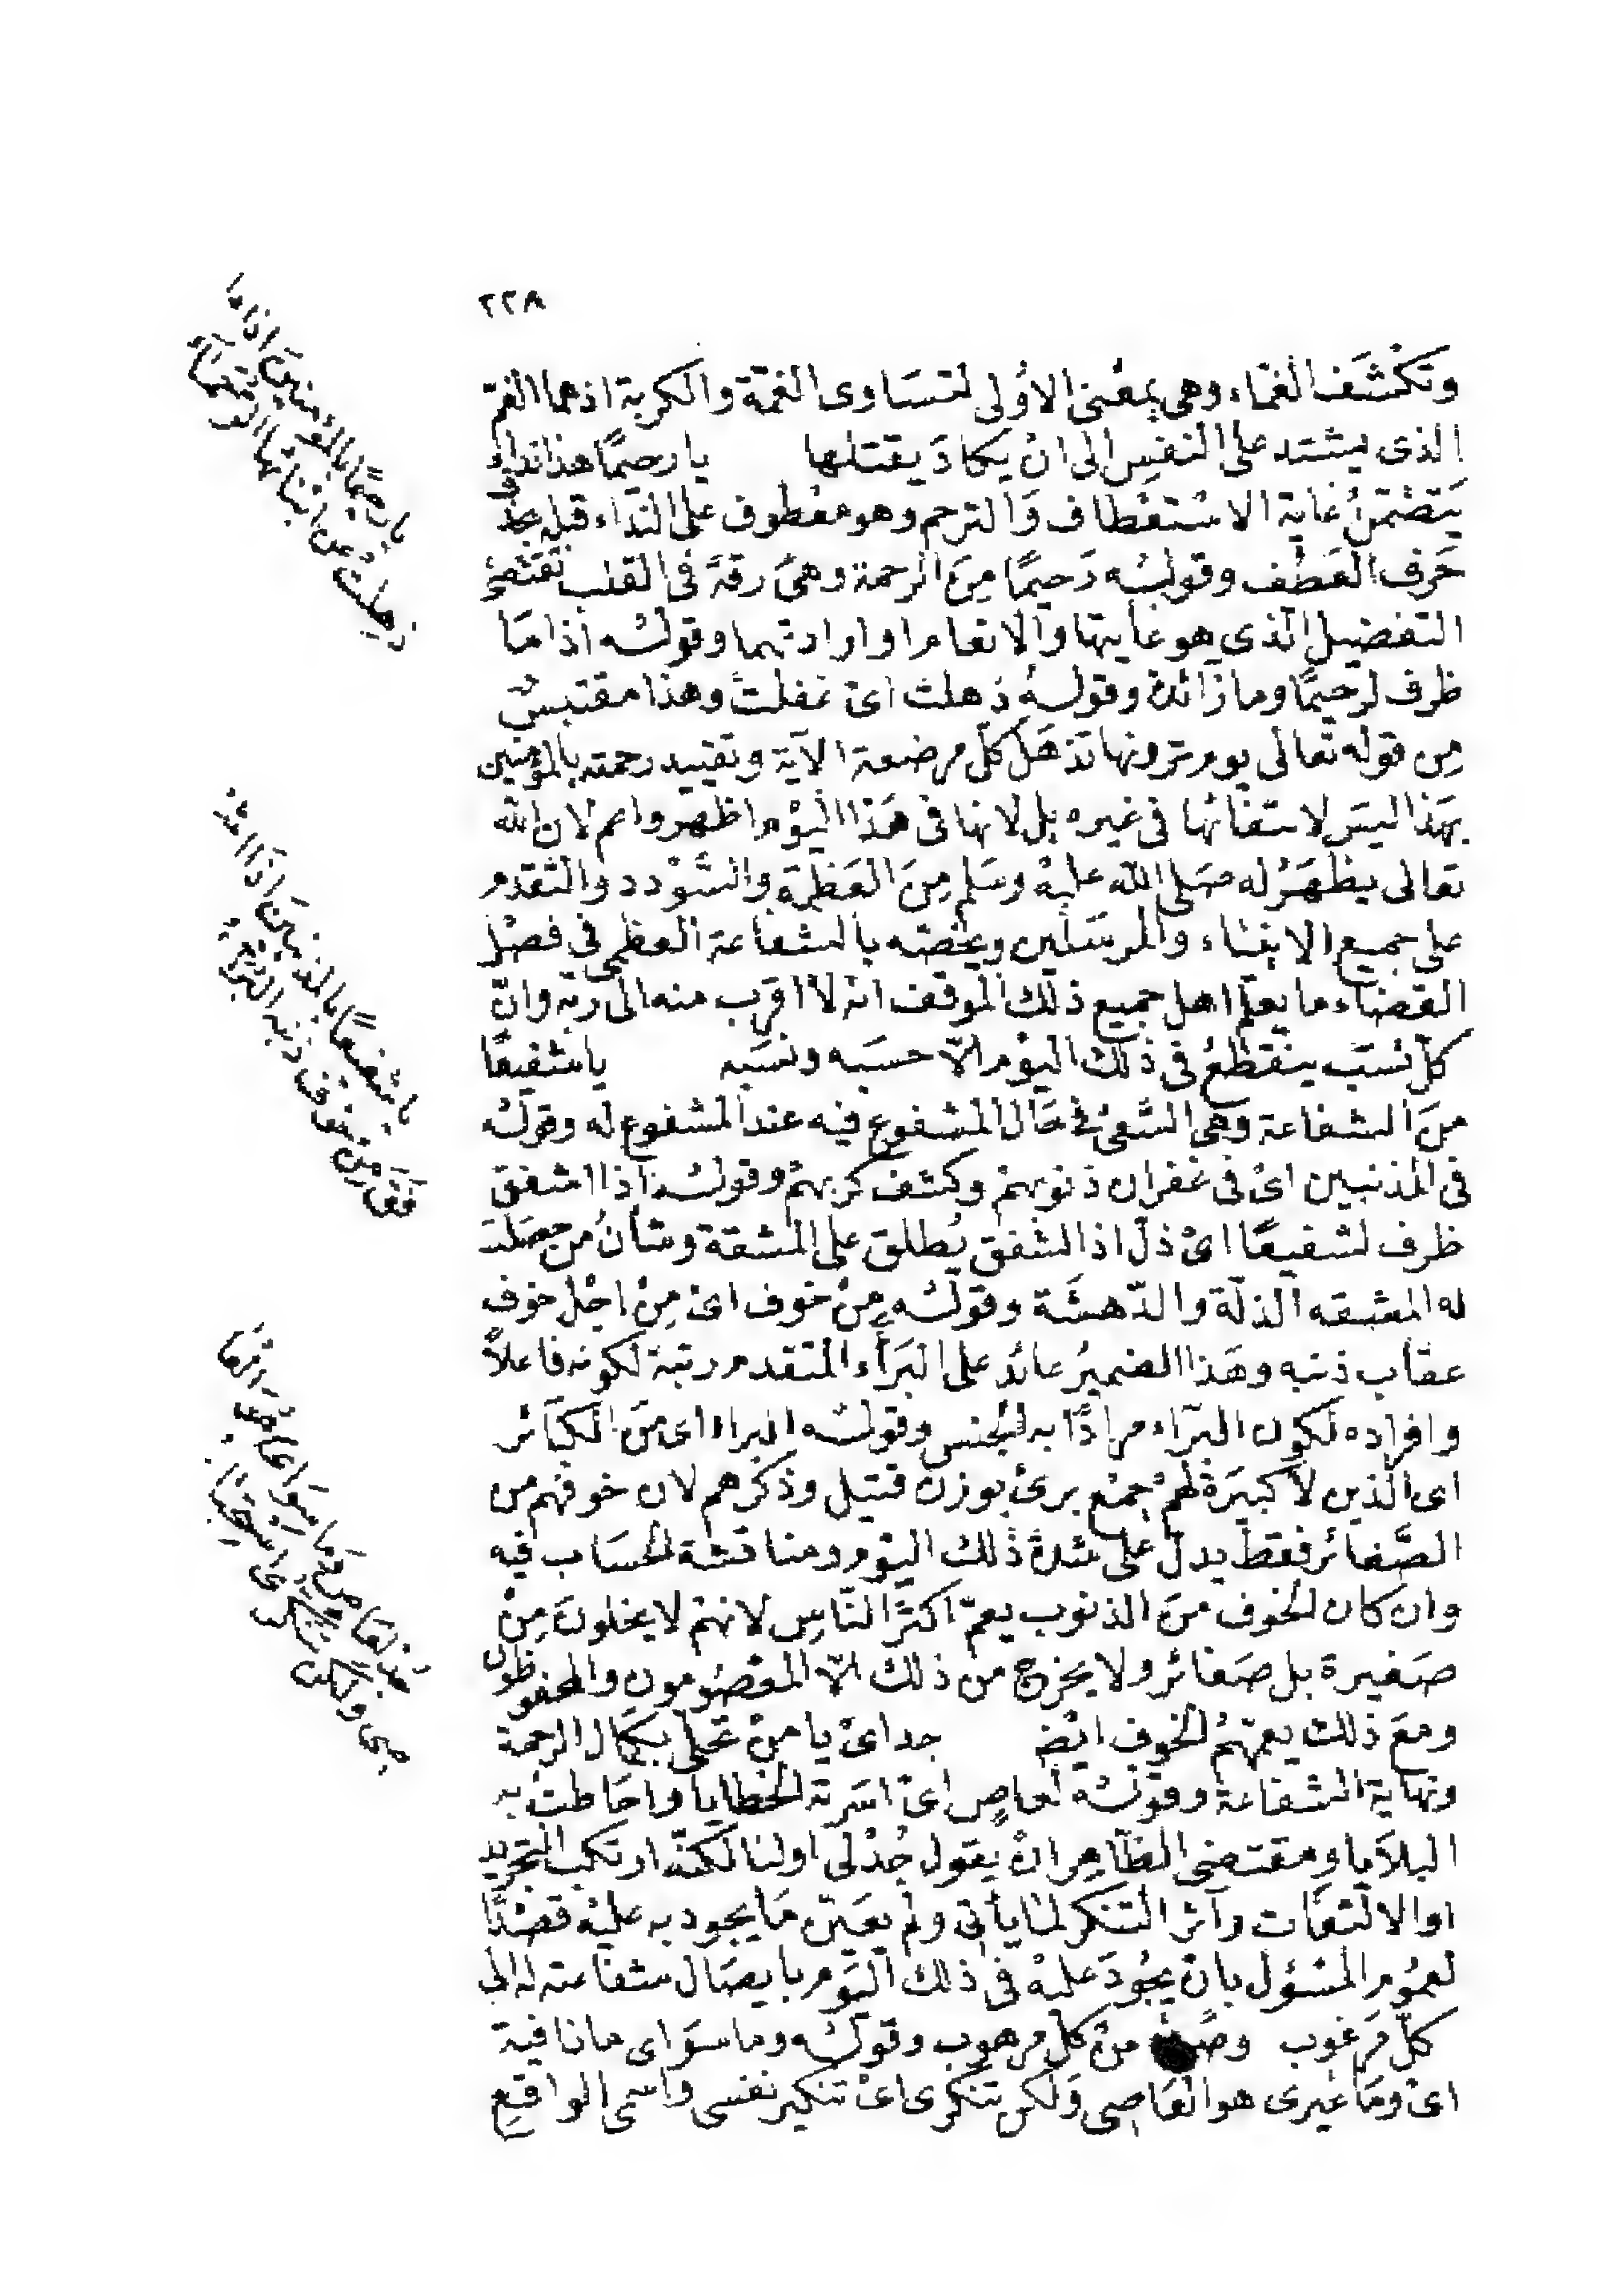 ٢٢٨
وتكشف الغماء وهي بمعنى الاولى لتساوى الغمة والكربة اذ هما الغم
الذى يشتد على النفس الى ان يكاد يقتلها يا رحيما هذا نداء
يتضمن غاية الاستعطاف والترحم وهو معطوف على النداء قبله بحذف
حرف العطف وقوله رحيما من الرحمة وهى رقة فى القلب تقتضى
التفضيل الذى هو غايتها والانعام او ارادتهما وقوله اذا ما
ظرف لرحيما وما زائدة وقوله ذهلت اى غفلت وهذا مقتبس
من قوله تعالى يوم ترونها تذهل كل مرضعة الآية وتقييد رحمته بالمؤمنين
بهذا ليس لانتفائها فى غيره بل لانها فى هذا اليوم اظهر واعم لان الله
تعالى يظهر له صلى الله عليه وسلم من العظمة والسؤدد والتقدم
على جميع الانبياء والمرسلين ويخصه بالشفاعة العظمى فى فصل
القضاء ما يعلم اهل جميع ذلك الموقف انه لا اقرب منه الى ربه وان
كل نسب ينقطع فى ذلك اليوم الا حسبه ونسبه يا شفيعا
من الشفاعة وهى السعى فى حال المشفوع فيه عند المشفوع له وقوله
فى المذنبين اى فى غفران ذنوبهم وكشف كربهم وقوله اذا اشفق
ظرف لشفيعا اى ذل اذ الشفق يطلق على المشقة وشأن من حصلت
له المشقه الذلة والدهشة وقوله من خوف اى من اجل خوف
عقاب ذنبه وهذا الضمير عائد على البرآء المتقدم رتبة لكونه فاعلا
وافراده لكون البرآء مرادا به الجنس وقوله البراء اى من الكبائر
اى الذين لا كبيرة لهم جمع برئ بوزن قتيل وذكرهم لان خوفهم من
الصغائر فقط يدل على شدة ذلك اليوم ومناقشة الحساب فيه
وان كان الخوف من الذنوب يعم اكثر الناس لانهم لا يخلون من
صغيرة بل صغائر ولا يخرج من ذلك الا المعصومون والمحفوظون
ومع ذلك يعمهم الخوف ايض جد اى يا من تحلى بكمال الرحمة
ونهاية الشفاعة وقوله لعاص اى اسرته الخطايا واحاطت به
البلايا ومقتضى الظاهر ان يقول جد لى او لنا لكنه ارتكب التجريد
او الالتفات وآثر التنكر لما يأتى ولم يعين ما يجود به عليه قصدا
لعموم المسؤل بان يجود عليه فى ذلك اليوم بايصال شفاعته له الى
كل مرغوب من كل مرهوب وقوله وما سواى ما نافية
اى وما غيرى هو العاصى ولكن تنكرى اى تنكير نفسى واسمى الواقع
يا رحيما بالمؤمنين اذا ما
ذهلت عن ابنائها الرحماء
يا شفيعا بالمذنبين اذا اشفق
من خوف ذنبه البرآء
جد لعاص وما سواى هو العا
صى ولكن تنكرى استحياء